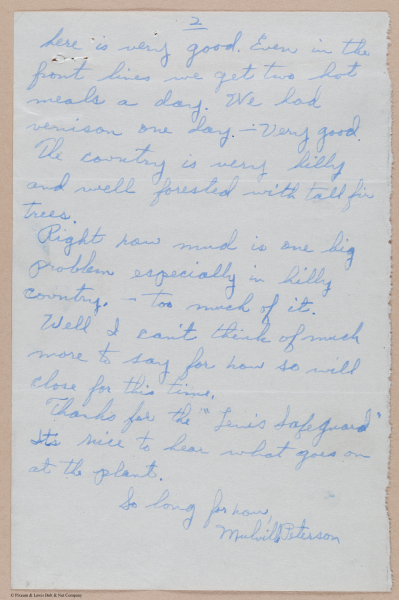 2
here is very good. Even in the
front lines we get two hot
meals a day. We had
venison one day. - Very good.
The country is very hilly
and well forested with tall fir
trees.
Right now mud is one big
problem especially in hilly
country. - too much of it.
Well I can't think of much
more to say for now so will
close for this time.
Thanks for the "Lewis Safeguard"
Its nice to hear what goes on
at the plant.
So long for now,
Peterson
© Pheoll & Lewis Bolt & Nut Company